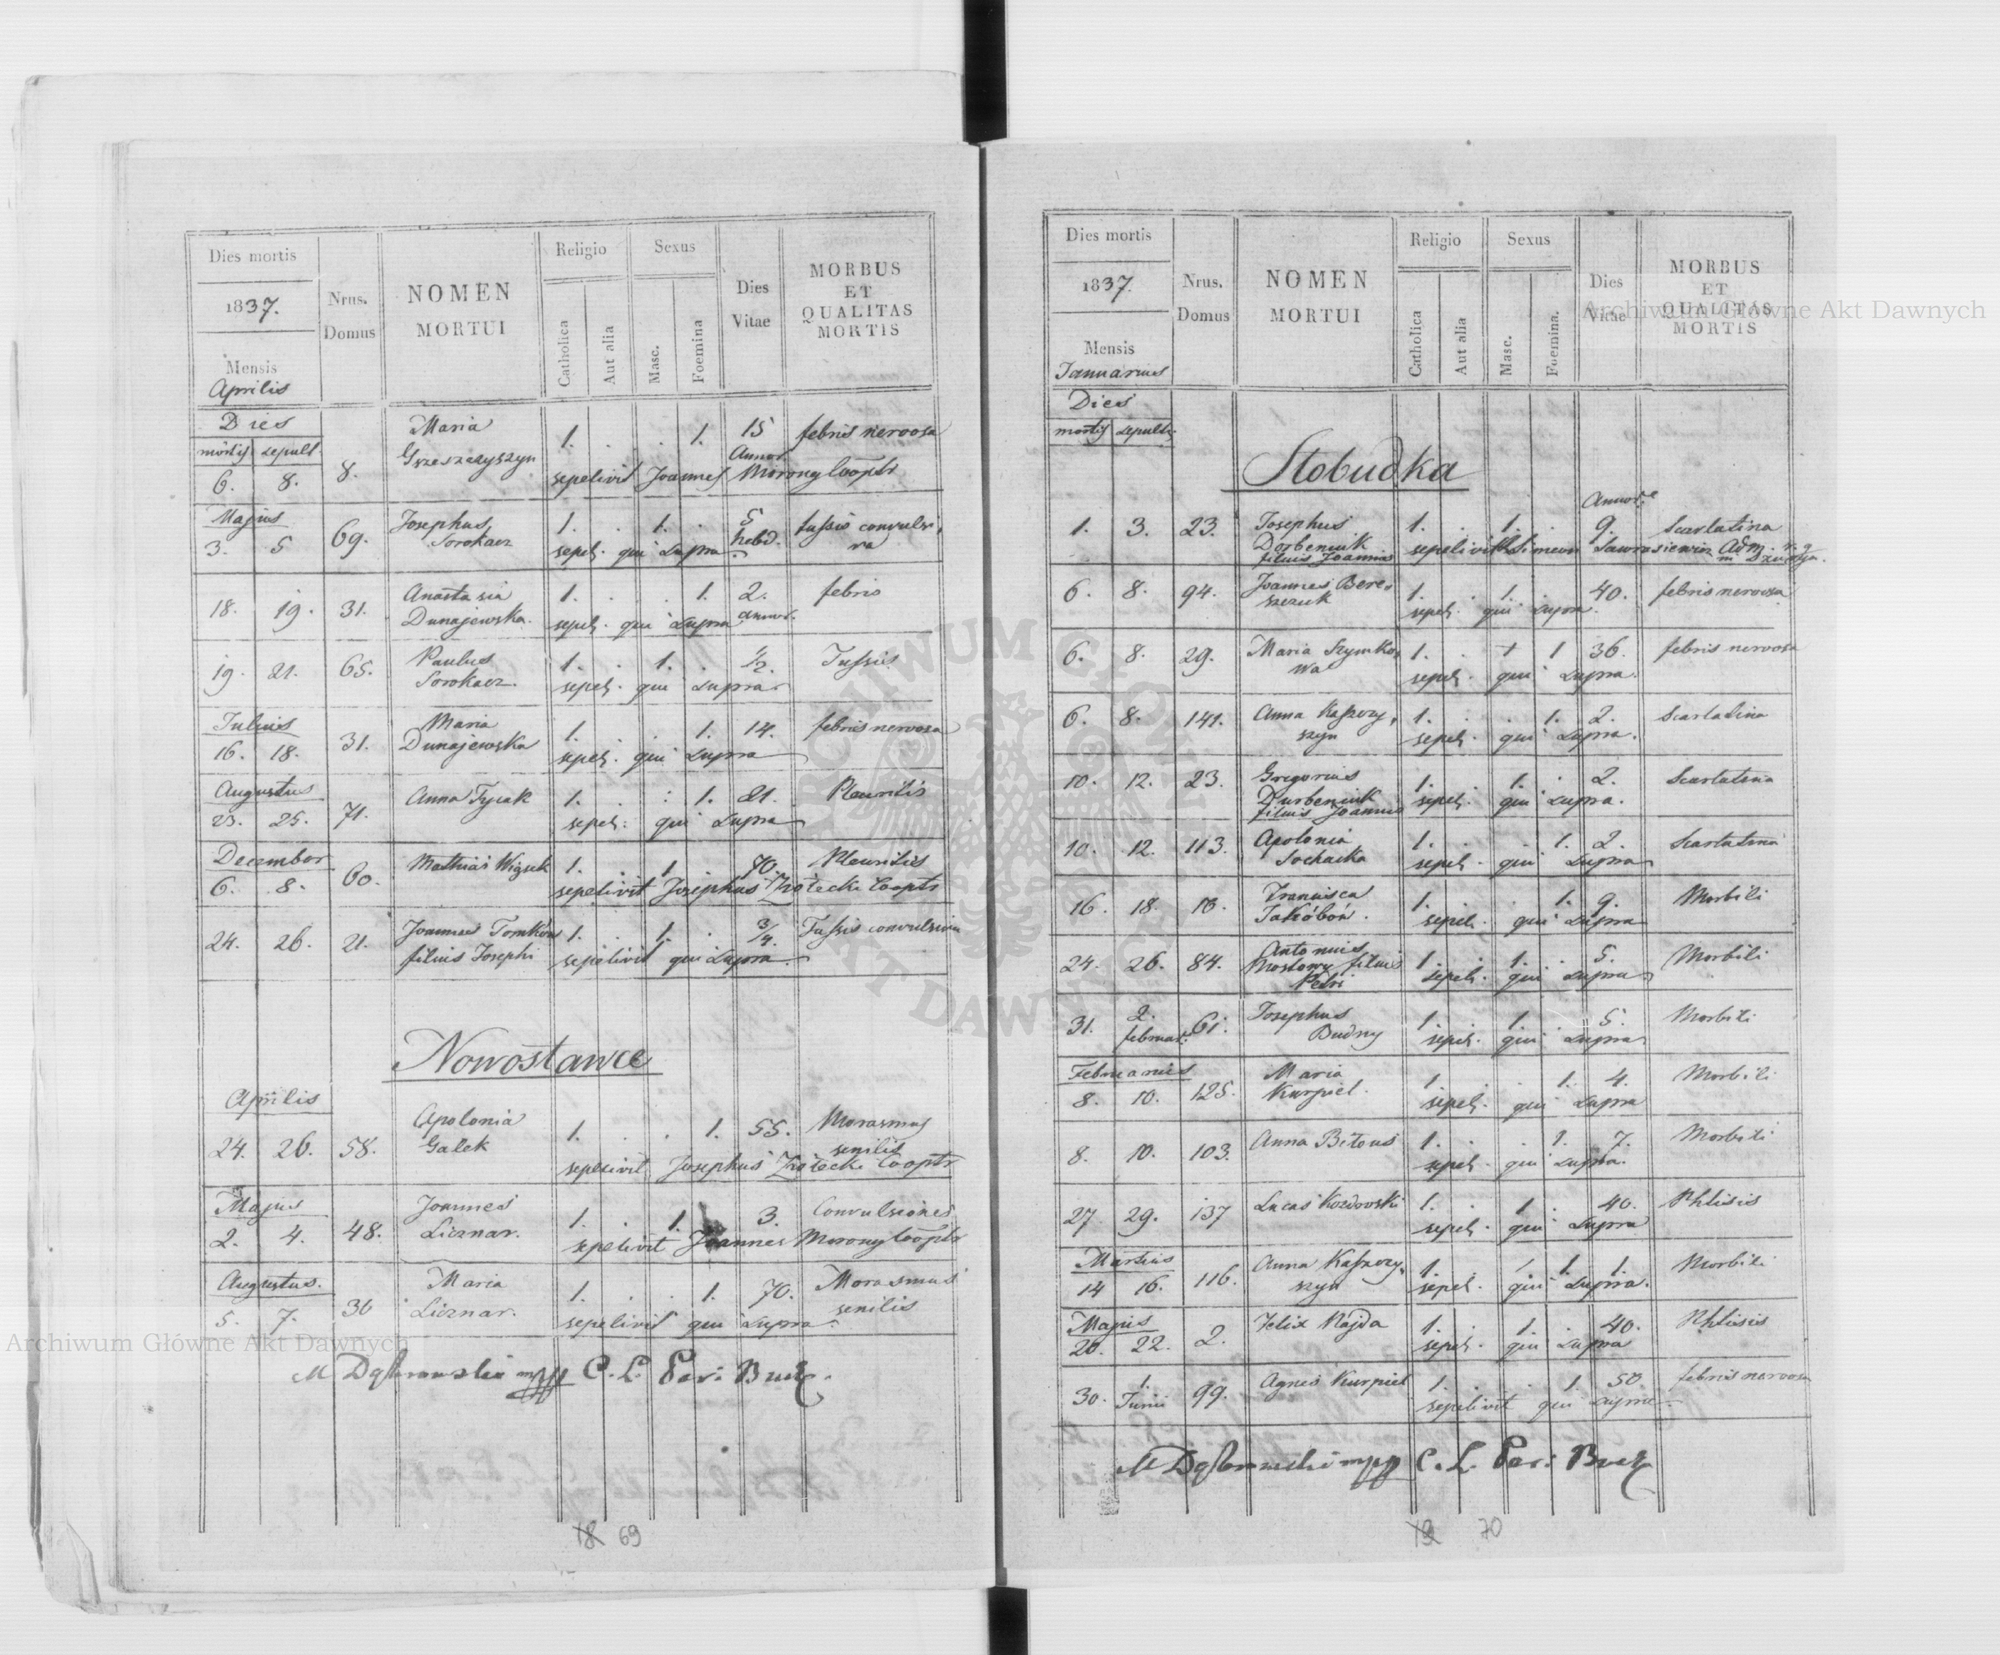 Dies mortis
1837.
Mensis
Aprilis
Nrus.
Domus
NOMEN
MORTUI
Religio
Catholica
Aut alia
Sexus
Masc.
Foemina
Dies
Vitae
MORBUS
ET
QUALITAS
MORTIS
Dies
mortis sepult.
6. 8. 8. Maria 1. . . 1. 15 febris nervosa
Annor.
sepelivit Joannes Morony Cooptr
Majus
3. 5 69. Josephus 1. . 1. . 5 tussis convulsi
Sorokacz hebd. va
sepel. qui supra
18. 19. 31. Anastasia 1. . . 1. 2. febris
Dunajewska. sepel. qui supra annor.
19. 21. 65. Paulus 1. . 1. . 1/2. Tussis
Sorokacz. sepel. qui supra
Julius
16. 18. 31. Maria 1. . . 1. 14. febris nervosa
Dunajewska sepel. qui supra
Augustus
23. 25. 71. Anna Tycak 1. . . 1. 21. Pleuritis
sepel. qui supra
December
6. 8. 60. Mathias 1. . 1. . 70. Pleuritis
sepelivit Josephus Cooptr
24. 26. 21. Joannes Tomków 1. . 1. . 3/4. Tussis convulsiva
filius Josephi sepelivit qui supra
Nowostawce
Aprilis
24. 26. 58. Apolonia 1. . . 1. 55. Morasmus
Galek senilis
sepelivit Josephus Cooptr
Majus
2. 4. 48. Joannes 1. . 1. 3. Convulsiones
Licznar. sepelivit Joannes Morony Cooptr
Augustus.
5. 7. 36 Maria 1. . . 1. 70. Morasmus
Licznar. senilis
sepelivit qui supra
18 69
Dies mortis
1837.
Mensis
Januarius
Nrus.
Domus
NOMEN
MORTUI
Religio
Catholica
Aut alia
Sexus
Masc.
Foemina.
Dies
Vitae
MORBUS
ET
QUALITAS
MORTIS
Dies
mortis sepult.
Slobudka
Annor.
1. 3. 23. Josephus 1. . 1. . 9. Scarlatina
filius Joannis sepelivit Simeon
6. 8. 94. Joannes Bere- 1. . 1. . 40. febris nervosa
szczuk sepel. qui supra.
6. 8. 29. Maria Szymko- 1. . 1 36. febris nervosa
wa sepel. qui supra.
6. 8. 141. Anna 1. . . 1. 2. Scarlatina
szyn sepel. qui supra.
10. 12. 23. Gregorius 1. . 1. . 2. Scarlatina
filius Joannis sepel. qui supra.
10. 12. 113. Apolonia 1. . . 1. 2. Scarlatina
Sochacka sepel. qui supra
16. 18. Francisca 1. . . 1. 9. Morbili
sepel. qui supra
24. 26. 84. Antonius 1. . 1. . 5. Morbili
Mostowy filius
Petri sepel. qui supra
31. 2. 61. Josephus 1. . 1. . 5. Morbili
februar. Budny sepel. qui supra
Februarius
8. 10. 125. Maria 1. . . 1. 4. Morbili
Kurpiel. sepel. qui supra
8. 10. 103. Anna Bitous 1. . . 1. 7. Morbili
sepel. qui supra.
27 29. 137 Lucas 1. . 1. . 40. Phtisis
sepel. qui supra
Martius
14 16. 116. Anna 1. 1. 1. Morbili
szyn sepel. qui supra.
Majus
20. 22. 2. Felix Kajda 1. . 1. . 40. Phtisis
sepel. qui supra
30. 1. 99. Agnes Kurpiel 1. . . 1. 50 febris nervosa
Junii sepelivit qui supra
19 70
Archiwum Główne Akt Dawnych
Archiwum Główne Akt Dawnych
ARCHIWUM GŁÓWNE AKT DAWNYCH